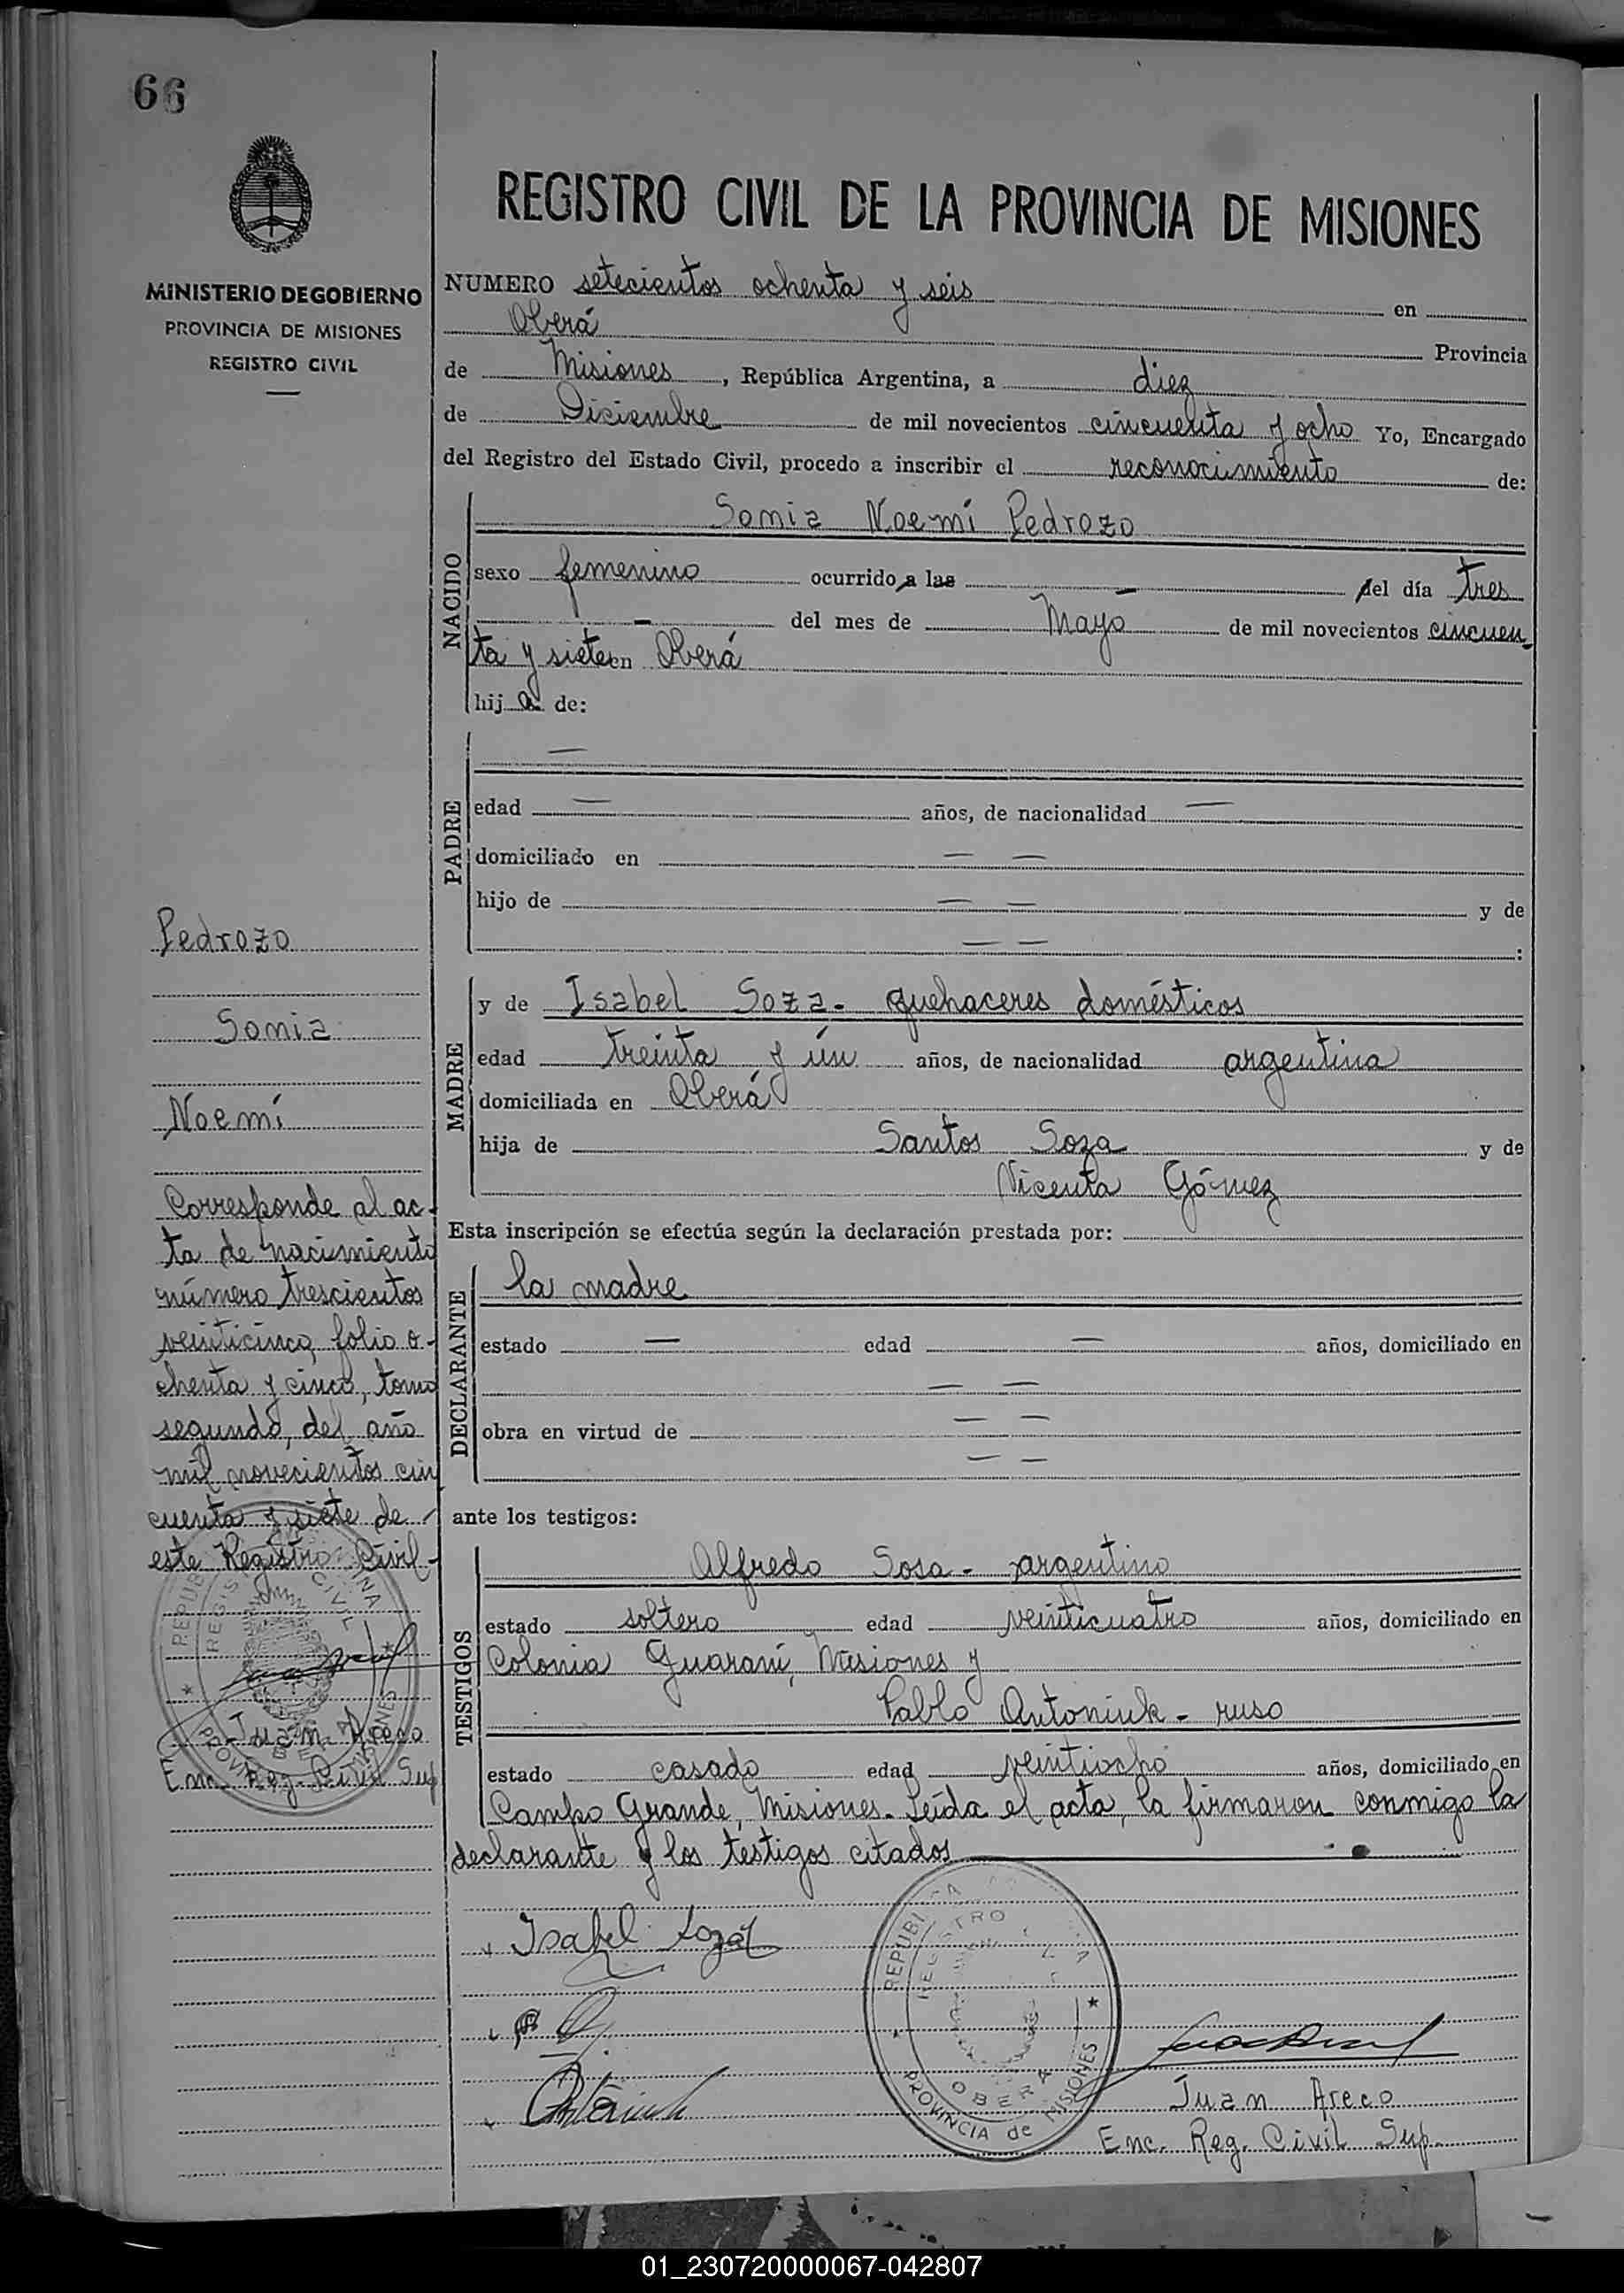 66
REGISTRO CIVIL DE LA PROVINCIA DE MISIONES
MINISTERIO DE GOBIERNO
PROVINCIA DE MISIONES
REGISTRO CIVIL
NUMERO setecientos ochenta y seis en
Oberá Provincia
de Misiones, República Argentina, a diez
de Diciembre de mil novecientos cincuenta y ocho Yo, Encargado
del Registro del Estado Civil, procedo a inscribir el reconocimiento de:
NACIDO
Sonia Noemí Pedrozo
sexo femenino ocurrido a las — del día tres
— del mes de Mayo de mil novecientos cincuen-
ta y siete en Oberá
hija de:
PADRE
—
edad — años, de nacionalidad —
domiciliado en — —
hijo de — — y de
— — :
MADRE
y de Isabel Soza - quehaceres domésticos
edad treinta y ún años, de nacionalidad argentina
domiciliada en Oberá
hija de Santos Soza y de
Vicenta Gómez
Esta inscripción se efectúa según la declaración prestada por:
DECLARANTE
la madre
estado — edad — años, domiciliado en
— —
obra en virtud de — —
— —
ante los testigos:
TESTIGOS
Alfredo Sosa - argentino
estado soltero edad veinticuatro años, domiciliado en
Colonia Guaraní, Misiones y
Pablo Antoniuk - ruso
estado casado edad veintiocho años, domiciliado en
Campo Grande, Misiones. Leída el acta, la firmaron conmigo la
declarante y los testigos citados
Isabel Soza
Antoniuk
Juan Areco
Enc. Reg. Civil Sup.
REGISTRO CIVIL
OBERA
PROVINCIA de MISIONES
Pedrozo
Sonia
Noemí
Corresponde al ac-
ta de nacimiento
número trescientos
veinticinco, folio o-
chenta y cinco, tomo
segundo, del año
mil novecientos cin
cuenta y siete de
este Registro Civil-
Juan Areco
Enc. Reg. Civil Sup
01_230720000067-042807